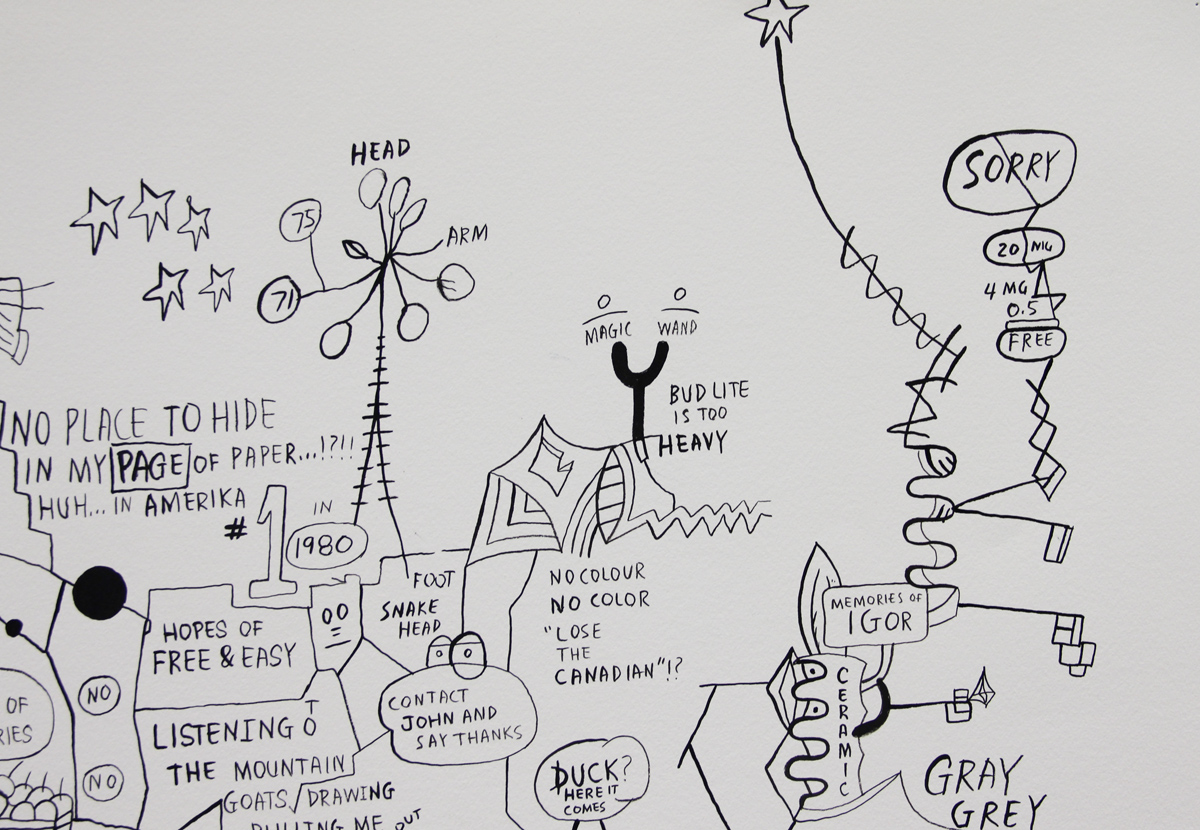 HEAD
75
ARM
71
SORRY
20 MG
4 MG
0.5
FREE
MAGIC WAND
BUD LITE
IS TOO
HEAVY
NO PLACE TO HIDE
IN MY PAGE OF PAPER...!?!!
HUH... IN AMERIKA
#1 IN
1980
FOOT
SNAKE
HEAD
HOPES OF
FREE & EASY
NO COLOUR
NO COLOR
"LOSE
THE
CANADIAN"!?
MEMORIES OF
IGOR
CERAMIC
NO
NO
OF
RIES
CONTACT
JOHN AND
SAY THANKS
LISTENING TO
THE MOUNTAIN
GOATS/DRAWING
PULLING ME OUT
DUCK?
HERE IT
COMES
GRAY
GREY